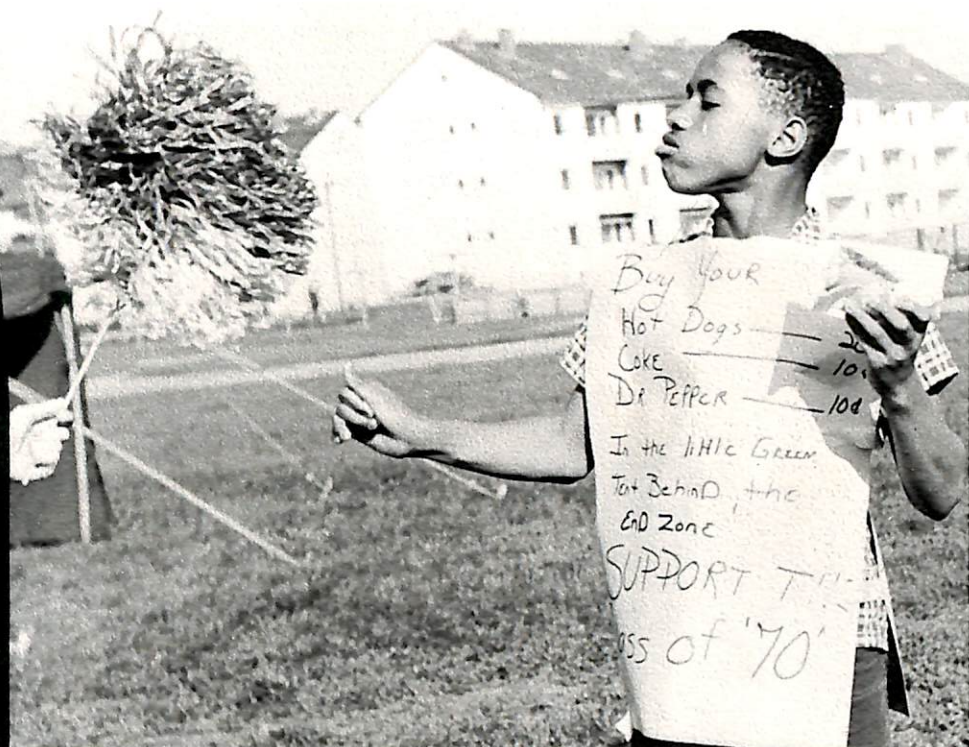 Buy Your
Hot Dogs
Coke — 10
Dr Pepper — 10¢
In the little Green
Tent BehinD the
EnD Zone
SUPPORT THE
of '70'